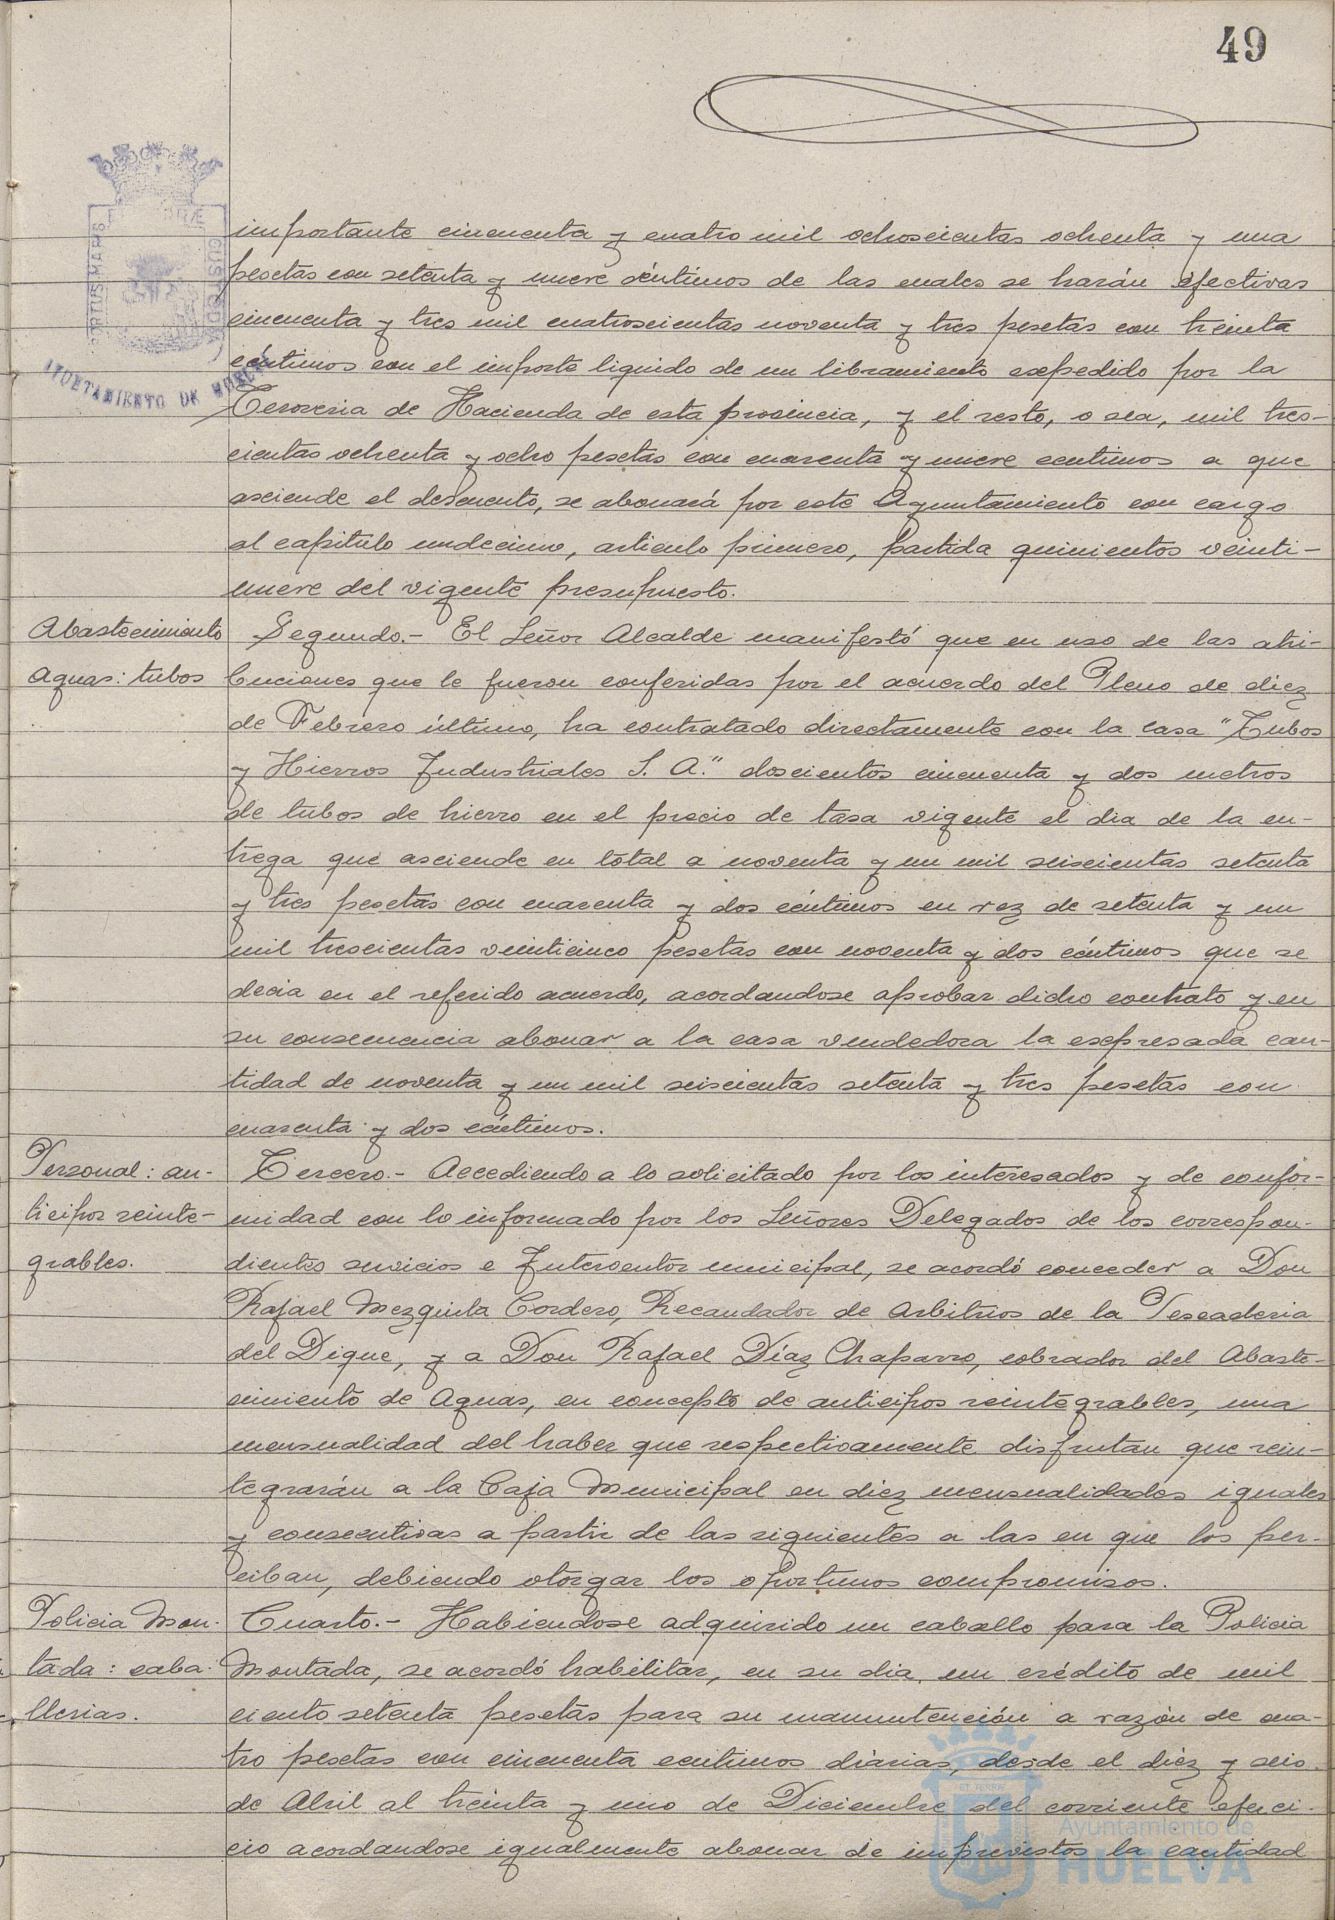 49
importante cincuenta y cuatro mil ochocientas ochenta y una
pesetas con setenta y nueve céntimos de las cuales se harán efectivas
cincuenta y tres mil cuatrocientas noventa y tres pesetas con treinta
céntimos con el importe liquido de un libramiento expedido por la
Tesoreria de Hacienda de esta provincia, y el resto, o sea, mil tres-
cientas ochenta y ocho pesetas con cuarenta y nueve centimos a que
asciende el descuento, se abonará por este Ayuntamiento con cargo
al capitulo undecimo, articulo primero, partida quinientos veinti-
nueve del vigente presupuesto.
Abastecimiento
Aguas: tubos
Segundo.- El Señor Alcalde manifestó que en uso de las atri-
buciones que le fueron conferidas por el acuerdo del Pleno de diez
de Febrero último, ha contratado directamente con la casa "Tubos
y Hierros Industriales S. A." doscientos cincuenta y dos metros
de tubos de hierro en el precio de tasa vigente el dia de la en-
trega que asciende en total a noventa y un mil seiscientas setenta
y tres pesetas con cuarenta y dos céntimos en vez de setenta y un
mil trescientas veinticinco pesetas con noventa y dos céntimos que se
decia en el referido acuerdo, acordandose aprobar dicho contrato y en
su consecuencia abonar a la casa vendedora la expresada can-
tidad de noventa y un mil seiscientas setenta y tres pesetas con
cuarenta y dos céntimos.
Personal: an-
ticipos reinte-
grables.
Tercero.- Accediendo a lo solicitado por los interesados y de confor-
midad con lo informado por los Señores Delegados de los correspon-
dientes servicios e Interventor municipal, se acordó conceder a Don
Rafael Mezquita Cordero, Recaudador de Arbitrios de la Pescaderia
del Dique, y a Don Rafael Díaz Chaparro, cobrador del Abaste-
cimiento de Aguas, en concepto de anticipos reintegrables, una
mensualidad del haber que respectivamente disfrutan que rein-
tegrarán a la Caja Municipal en diez mensualidades iguales
y consecutivas a partir de las siguientes a las en que los per-
ciban, debiendo otorgar los oportunos compromisos.
Policia Mon-
tada: caba-
llerias.
Cuarto.- Habiendose adquirido un caballo para la Policia
Montada, se acordó habilitar, en su dia, un crédito de mil
ciento setenta pesetas para su manutención a razón de cua-
tro pesetas con cincuenta centimos diarias, desde el diez y seis
de Abril al treinta y uno de Diciembre del corriente ejerci-
cio acordandose igualmente abonar de imprevistos la cantidad
PORTUS MARIS
ET TERRÆ
CUSTODIA
AYUNTAMIENTO DE HUELVA
ET TERRÆ
Ayuntamiento de
HUELVA